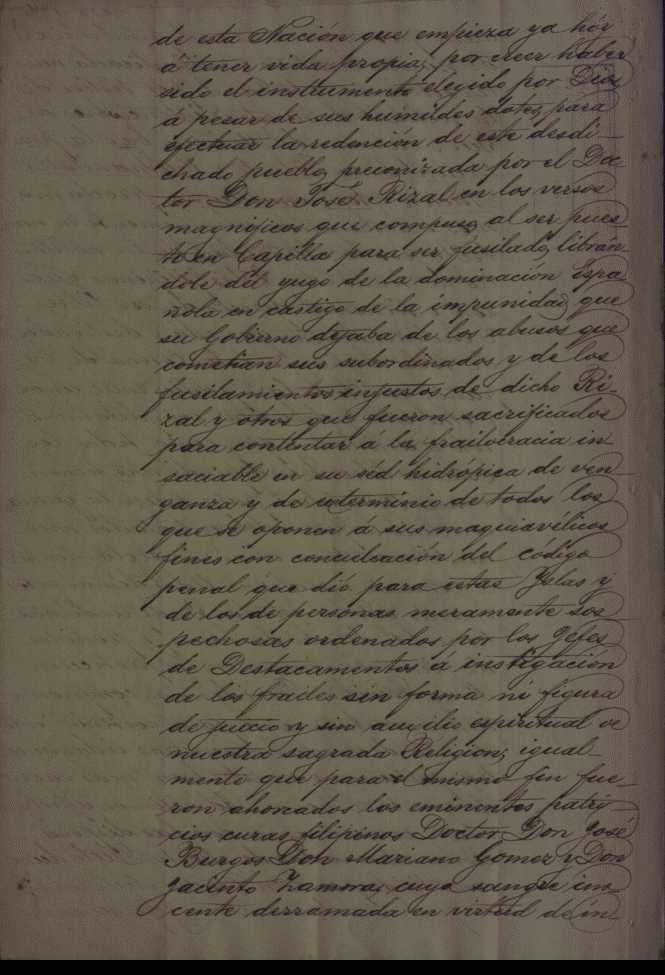 de esta Nación que empieza ya hóy
á tener vida propia, por creer haber
sido el instrumento elegido por Dios,
á pesar de sus humildes dotes, para
efectuar la redención de este desdi-
chado pueblo, preconizada por el Doc-
tor Don José Rizal en los versos
magníficos que compuso, al ser pues-
to en Capilla para ser fusilado, librán-
dole del yugo de la dominación espa-
ñola en castigo de la impunidad que
su Gobierno dejaba de los abusos que
cometian sus subordinados y de los
fusilamientos injustos de dicho Ri-
zal y otros que fueron sacrificados
para contentar a la frailocracia in-
saciable en su séd hidrópica de ven-
ganza y de exterminio de todos los
que se oponen á sus maquiavélicos
fines con conculcación del Código
penal que dió para estas Yslas y
de los de personas meramente sos
pechosas ordenados por los Gefes
de Destacamentos á instigacion
de los frailes sin forma ni figura
de juicio y sin auxilio espiritual de
nuestra sagrada Religion; igual-
mente que para el mismo fin fue-
ron ahorcados los eminentes patri-
cios curas filipinos Doctor Don José
Burgos Don Mariano Gomez y Don
Jacinto Zamora, cuya sangre ino-
cente derramada en virtud de in-